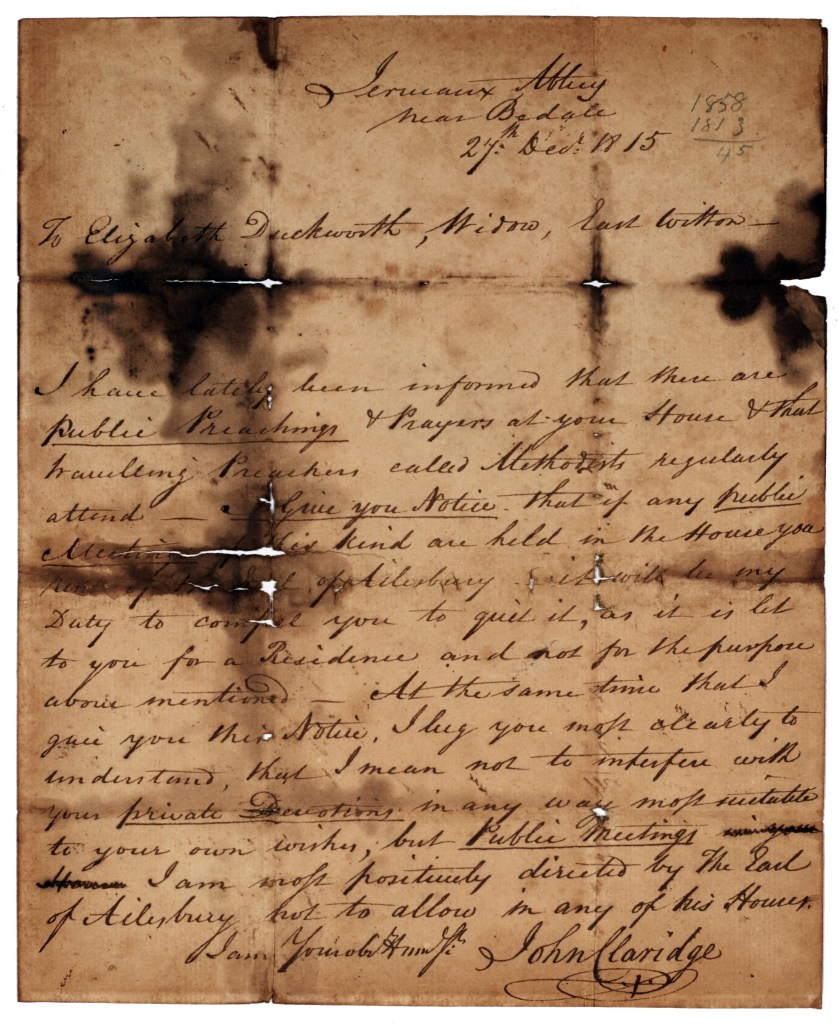 Jervaux Abbey
near Bedale
27th Decr. 1815
1858
1813
45
To Elizabeth Duckworth, Widow, East Witton —
I have lately been informed that there are
public Preachings & Prayers at your House & that
travelling Preachers called Methodists regularly
attend — I Give you Notice that if any public
Meetings of this kind are held in the House you
of Ailesbury it will be my
Duty to compel you to quit it, as it is let
to you for a Residence and not for the purpose
above mentioned — At the same time that I
give you this Notice, I beg you most clearly to
understand, that I mean not to interfere with
your private Devotions in any way most suitable
to your own wishes, but Public Meetings
I am most positively directed by The Earl
of Ailesbury not to allow in any of his Houses.
I am Your obt Hum St.
John Claridge